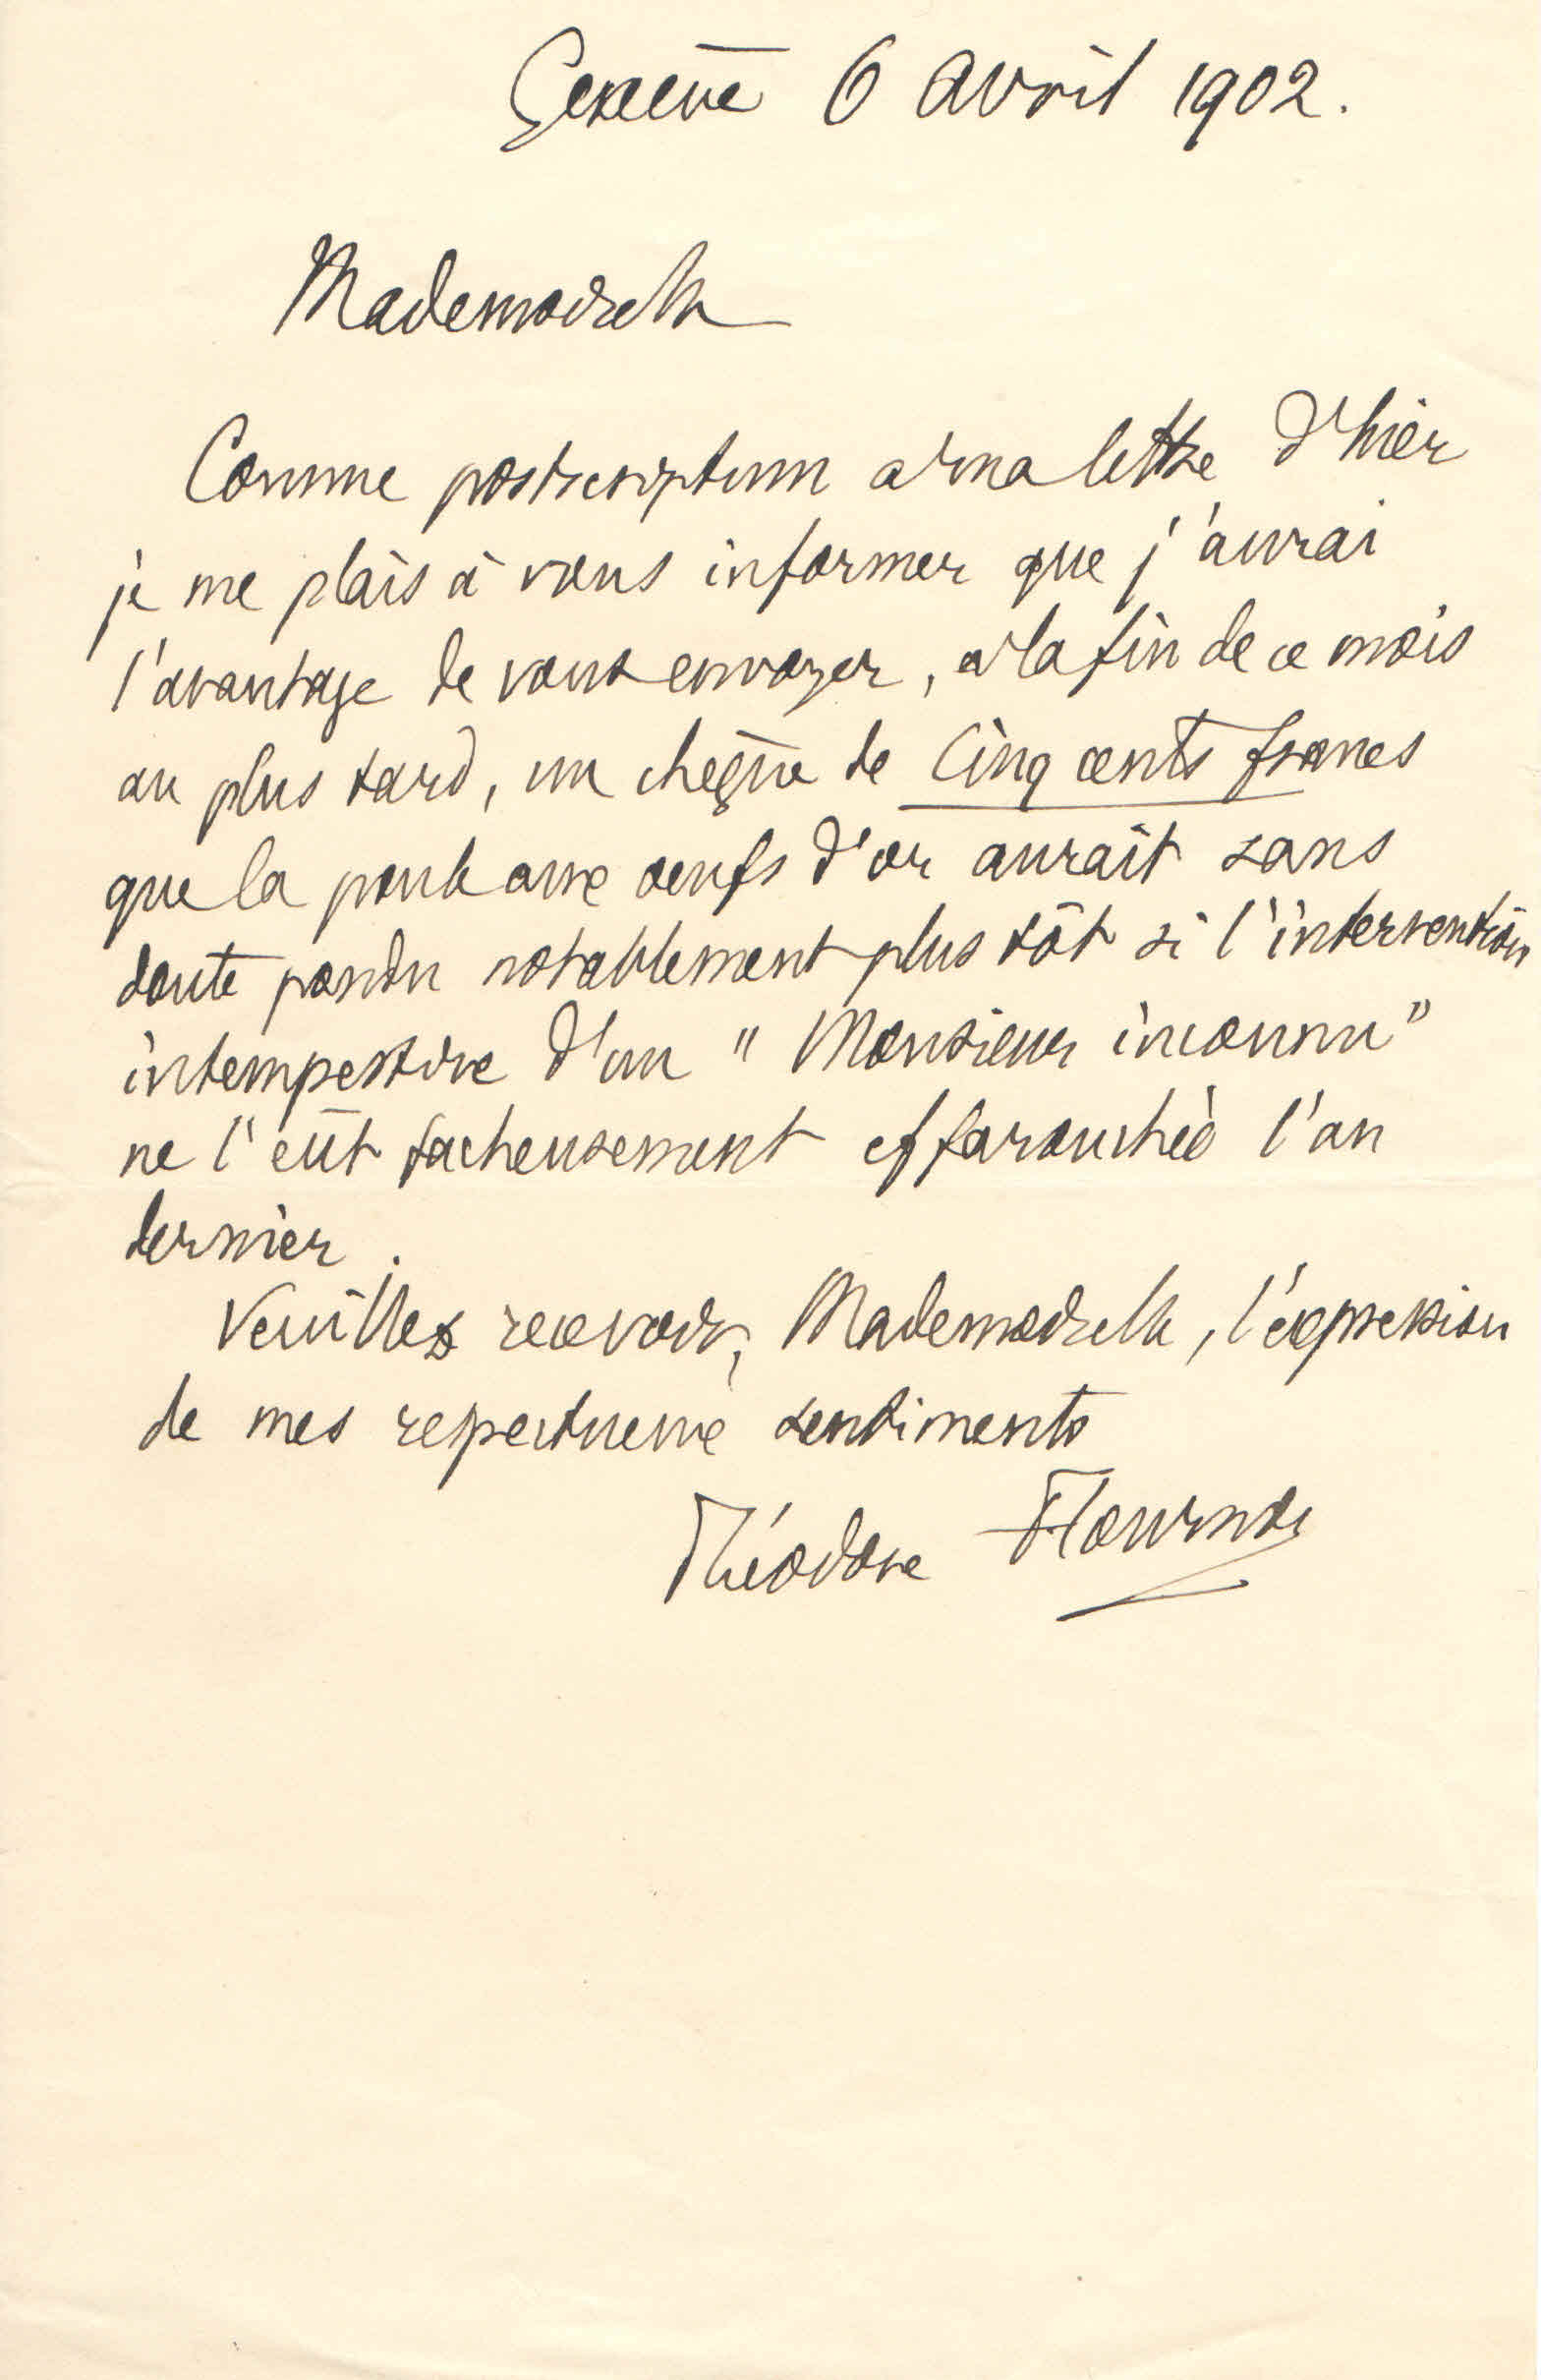 Genève 6 Avril 1902.
Mademoiselle
Comme postscriptum à ma lettre d'hier
je me plais à vous informer que j'aurai
l'avantage de vous envoyer, à la fin de ce mois
au plus tard, un chèque de Cinq cents francs
que la poule aux oeufs d'or aurait sans
doute pondu notablement plus tôt si l'intervention
intempestive d'un "Monsieur inconnu"
ne l'eût facheusement effarouchée l'an
dernier.
Veuillez recevoir, Mademoiselle, l'expression
de mes respectueux sentiments
Théodore Flournoy